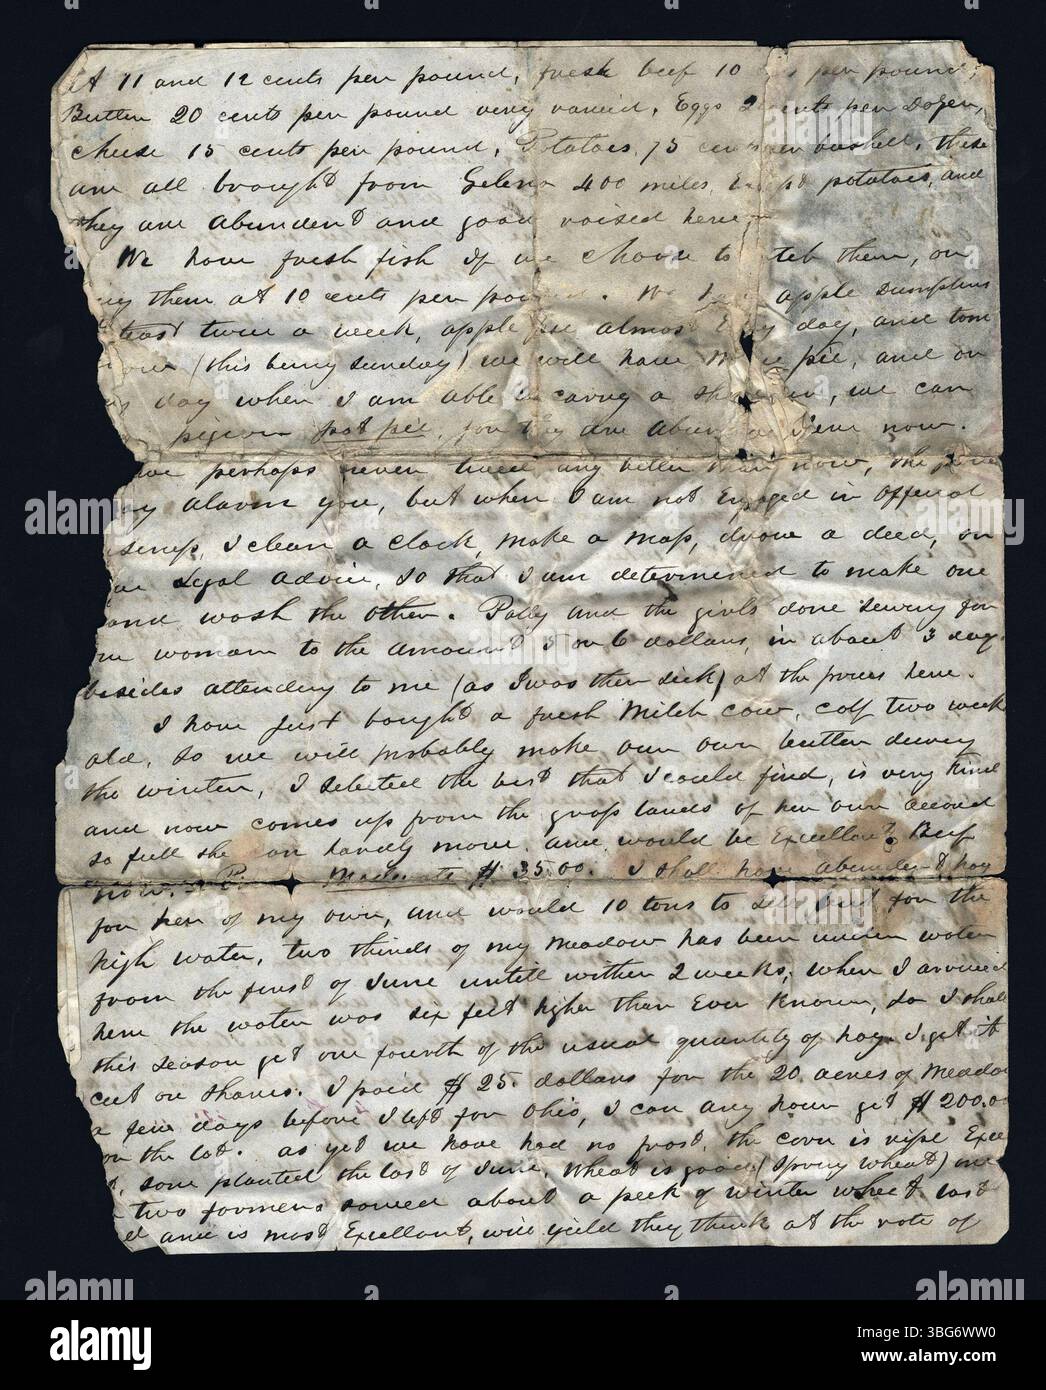 at 11 and 12 cents per pound, fresh beef 10 per pound,
Butter 20 cents per pound very varied, Eggs cents per Dozen,
cheese 15 cents per pound, Potatoes, 75 bushell, these
are all brought from Gelena 400 miles, potatoes, and
they are abundent and good raised here
We have fresh fish if we choose to them, or
them at 10 cents per We apple Dumplins
twice a week, apple almost day, and tom
(this being sunday) we will have pie, and on
day when I am able to carry a we can
pigeon pot pie, for they are here now.
perhaps never lived any better than now, the
alarm you, but when I am not Engaged in offical
I clean a clock, make a map, draw a deed, or
Legal advice, so that I am determined to make one
wash the other. Polly and the girls done sewing for
one woman to the amount 5 or 6 dollars, in about 3 days
besides attending to me (as I was then sick) at the prices here.
I have just bought a fresh Milch cow, calf two week
old, so we will probably make our own butter during
the winter, I selected the best that I could find, is very kind
and now comes up from the grass lands of her own accord
so full she can hardly move, and would be Excellent Beef
now. $35.00. I shall have abundent hay
for her of my own, and would 10 tons to sell but for the
high water, two thirds of my meadow has been under water
from the first of June untill within 2 weeks, when I arrived
here the water was six feet higher than Ever Known, so I shall
this season get one fourth of the usual quantity of hay. I get it
cut on shares. I paid $25. dollars for the 20 acres of Meadow
a few days before I left for Ohio, I can any hour get $200.00
for the lot. as yet we have had no frost, the corn is ripe
some planted the last of June, wheat is good (spring wheat) one
or two farmers sowed about a peck of winter wheat last
and is most Excellent, will yield they think at the rate of
alamy
a
Image ID: 3BG6WW0
www.alamy.com